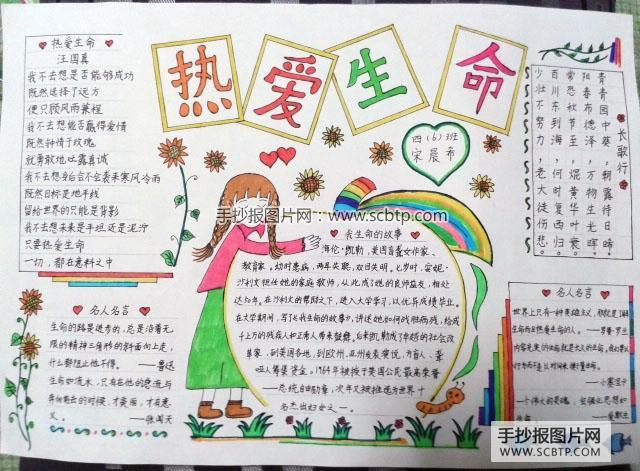 热爱生命
四(6)班
宋晨希
热爱生命
汪国真
我不去想是否能够成功
既然选择了远方
便只顾风雨兼程
我不去想能否赢得爱情
既然钟情于玫瑰
就勇敢地吐露真诚
我不去想身后会不会袭来寒风冷雨
既然目标是地平线
留给世界的只能是背影
我不去想未来是平坦还是泥泞
只要热爱生命
一切,都在意料之中
长歌行
青青园中葵,
阳春布德泽,
常恐秋节至,
百川东到海,
少壮不努力,
朝露待日晞
万物生光辉
焜黄华叶衰
何时复西归
老大徒伤悲
我生命的故事
海伦·凯勒,美国盲聋女作家、
教育家。幼时患病,两耳失聪,双目失明。七岁时,安妮·
沙利文担任她的家庭教师,从此成了她的良师益友,相处
达50年。在沙利文的帮助下,进入大学学习,以优异成绩毕业。
在大学期间,写了《我生命的故事》,讲述她如何战胜病残,给成
千上万的残疾人和正常人带来鼓舞。后来凯勒成了卓越的社会改
革家,到美国各地,到欧洲、亚洲发表演说,为盲人、聋
哑人筹集资金。1964年被授予美国公民最高荣誉
——总统自由勋章,次年又被推选为世界十
名杰出妇女之一。
名人名言
生命的路是进步的,总是沿着无
限的精神三角形的斜面向上走,
什么都阻止他不得。——鲁迅
生命如流水,只有在他的急流与
奔向前去的时候,才美丽,才有意
义。——张闻天
名人名言
世界上只有一种英雄主义,那就是了解
生命而且热爱生命的人。——罗曼·罗兰
——小塞涅卡
手抄报图片网:www.scbtp.com
手抄报图片网
WWW.SCBTP.COM